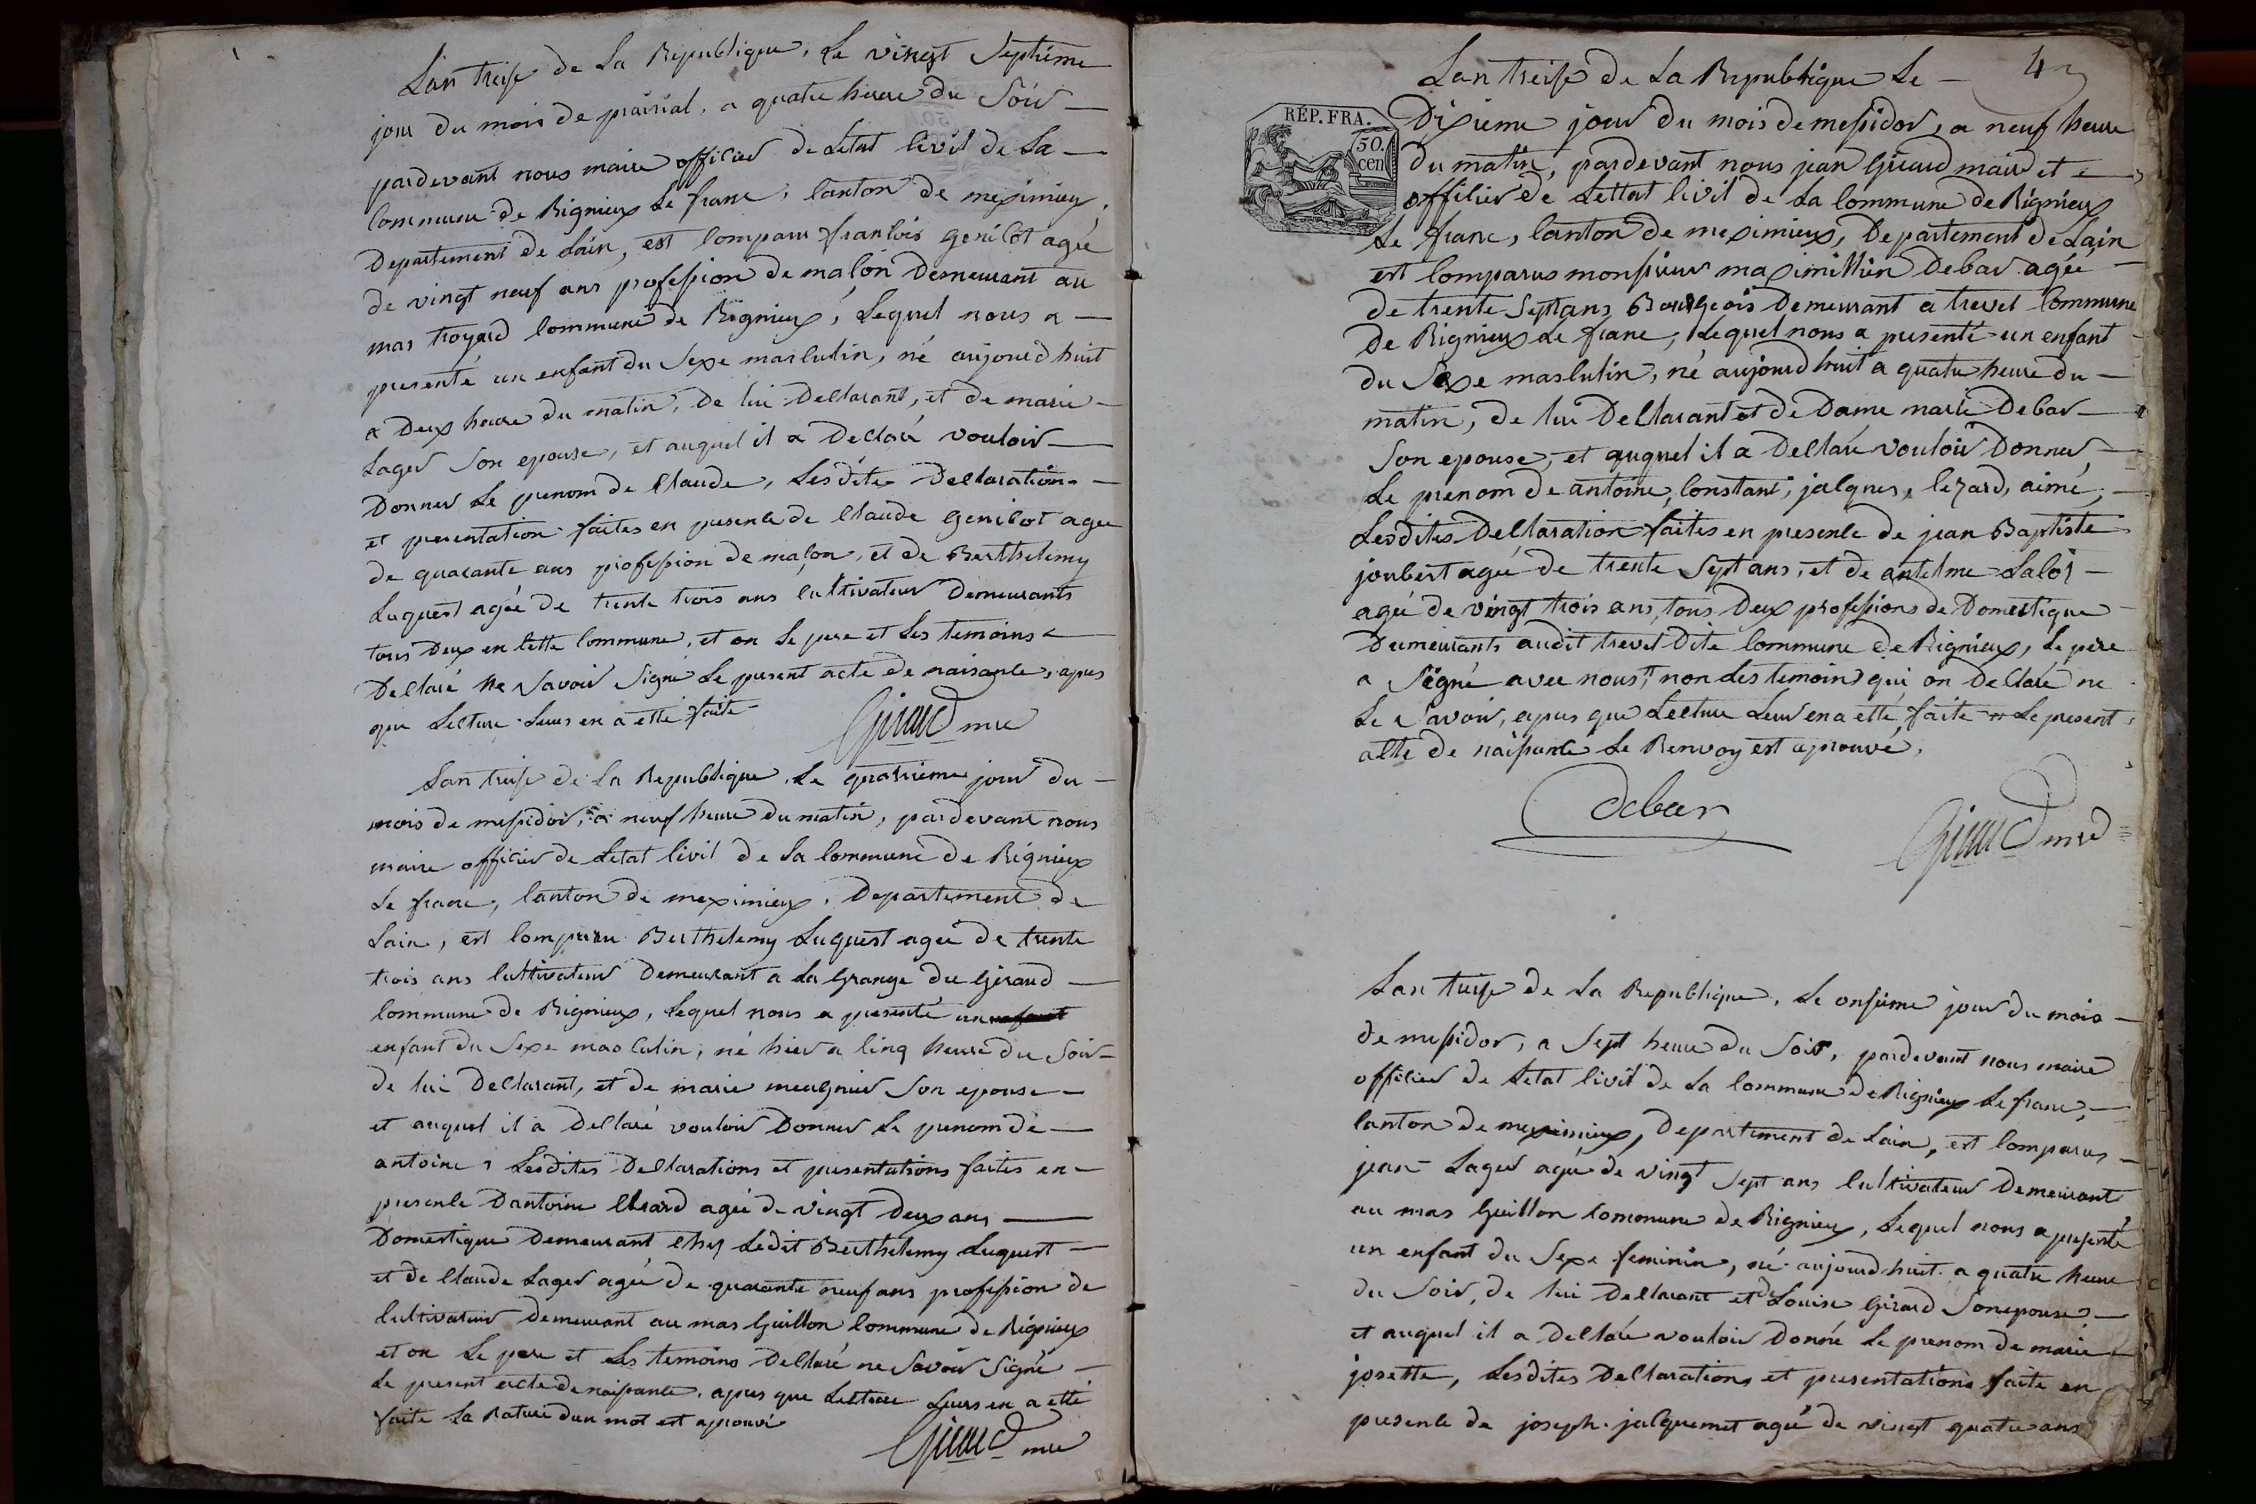 Lan treise de La Republique, Le vingt Septieme
jour du mois de prairial, a quatre heure du Soir
pardevant nous maire officier de Letat Civil de La
Commune de Rignieux Le franc, Canton de meximieux,
Departement de Lain, est Comparu francois genicot agée
de vingt neuf ans profession de maçon Demeurant au
mas troyard Commune de Rignieux, Lequel nous a
presenté un enfant du Sexe masculin, né aujourd huit
a Deux heure du matin, De lui Declarant, et de marie
Lager Son epouse, et auquel il a Declaré vouloir
Donner Le prenom de Claude, Lesdite Declaration
et presentation faites en presence de Claude genicot agee
de quarante ans profession de maçon, et de Berthelemy
Luquest agée de trente trois ans Cultivateur Demeurants
tous Deux en Cette Commune, et on Le pere et Les temoins
Declaré ne Savoir Signé Le present acte de naisance, apres
que Lecture Leurs en a etté faite
Giraud mre
Lan treise de La Republique, Le quatrieme jour du
mois de messidor, a neuf heure du matin, pardevant nous
maire officier de Letat Civil de La Commune de Rignieux
Le franc, Canton de meximieux, Departement de
Lain, est Comparu Berthelemy Luquest agée de trente
trois ans Cultivateur Demeurant a La Grange du Giraud
Commune de Rignieux, Lequel nous a presenté un
enfant du Sexe masculin, né hier a Cinq heure du Soir
de lui Declarant, et de marie meugnier Son epouse
et auquel il a Declaré vouloir Donner Le prenom de
antoine, Lesdites Declarations et presentations faites en
presence Dantoine Chard agée de vingt Deux ans
Domestique Demeurant Chez Ledit Berthelemy Luquest
et de Claude Lager agée de quarante neuf ans profession de
Cultivateur Demeurant au mas Guillon Commune de Rignieux
et on Le pere et Les temoins Declaré ne Savoir Signé
Le present acte de naissance, apres que Lecture Leurs en a etté
faite La Rature dun mot est aprouvé
Giraud mre
4
Lan treise de La Republique Le
RÉP. FRA.
50.
cen
Dixieme jour du mois de messidor, a neuf heure
du matin, pardevant nous jean Giraud maire et
officier de Lettat Civil de La Commune de Rignieux
Le franc, Canton de meximieux, Departement de Lain
est Comparus monsieur maximillien Debar agée
de trente Sept ans Bourgeois Demeurant a trevet Commune
De Rignieux Le franc, Lequel nous a presenté un enfant
du Sexe masculin, né aujourd huit a quatre heure du
matin, de lui Declarant et de Dame marie Debar
Son epouse, et auquel il a Declaré vouloir Donner
Le prenom de antoine, Constant, jacques, Cezard, aimé,
Lesdites Declaration faites en presence de jean Baptiste
joubert agée de trente Sept ans, et de antelme Laloi
agée de vingt trois ans, tous Deux professions de Domestique
Demeurants audit trevet Dite Commune de Rignieux, Le pere
a Signé avec nous, non Les temoins qui on Declaré ne
Le Savoir, apres que Lecture Leur en a etté faite Le present
acte de naissance Le Renvoy est aprouvé,
debar
Giraud mre
Lan treise de La Republique, Le onsieme jour du mois
de messidor, a Sept heure du Soir, pardevant nous maire
officier de Letat Civil de La Commune de Rignieux Le franc,
Canton de meximieux, Departement de Lain, est Comparus
jean Lager agée de vingt Sept ans Cultivateur Demeurant
au mas Guillon Commune de Rignieux, Lequel nous a presenté
un enfant du Sexe feminin, né aujourd huit a quatre heure
du Soir, de lui Declarant et de Louise Girard Son epouse
et auquel il a Declaré vouloir Donné Le prenom de marie
josette, Lesdites Declarations et presentations faite en
presence de joseph jacquemet agée de vingt quatre ans